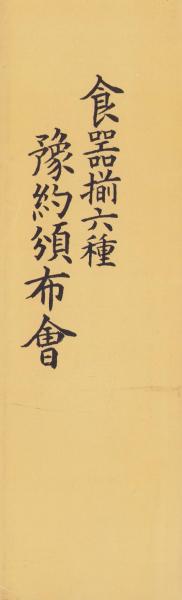 食器揃六種
豫約頒布會